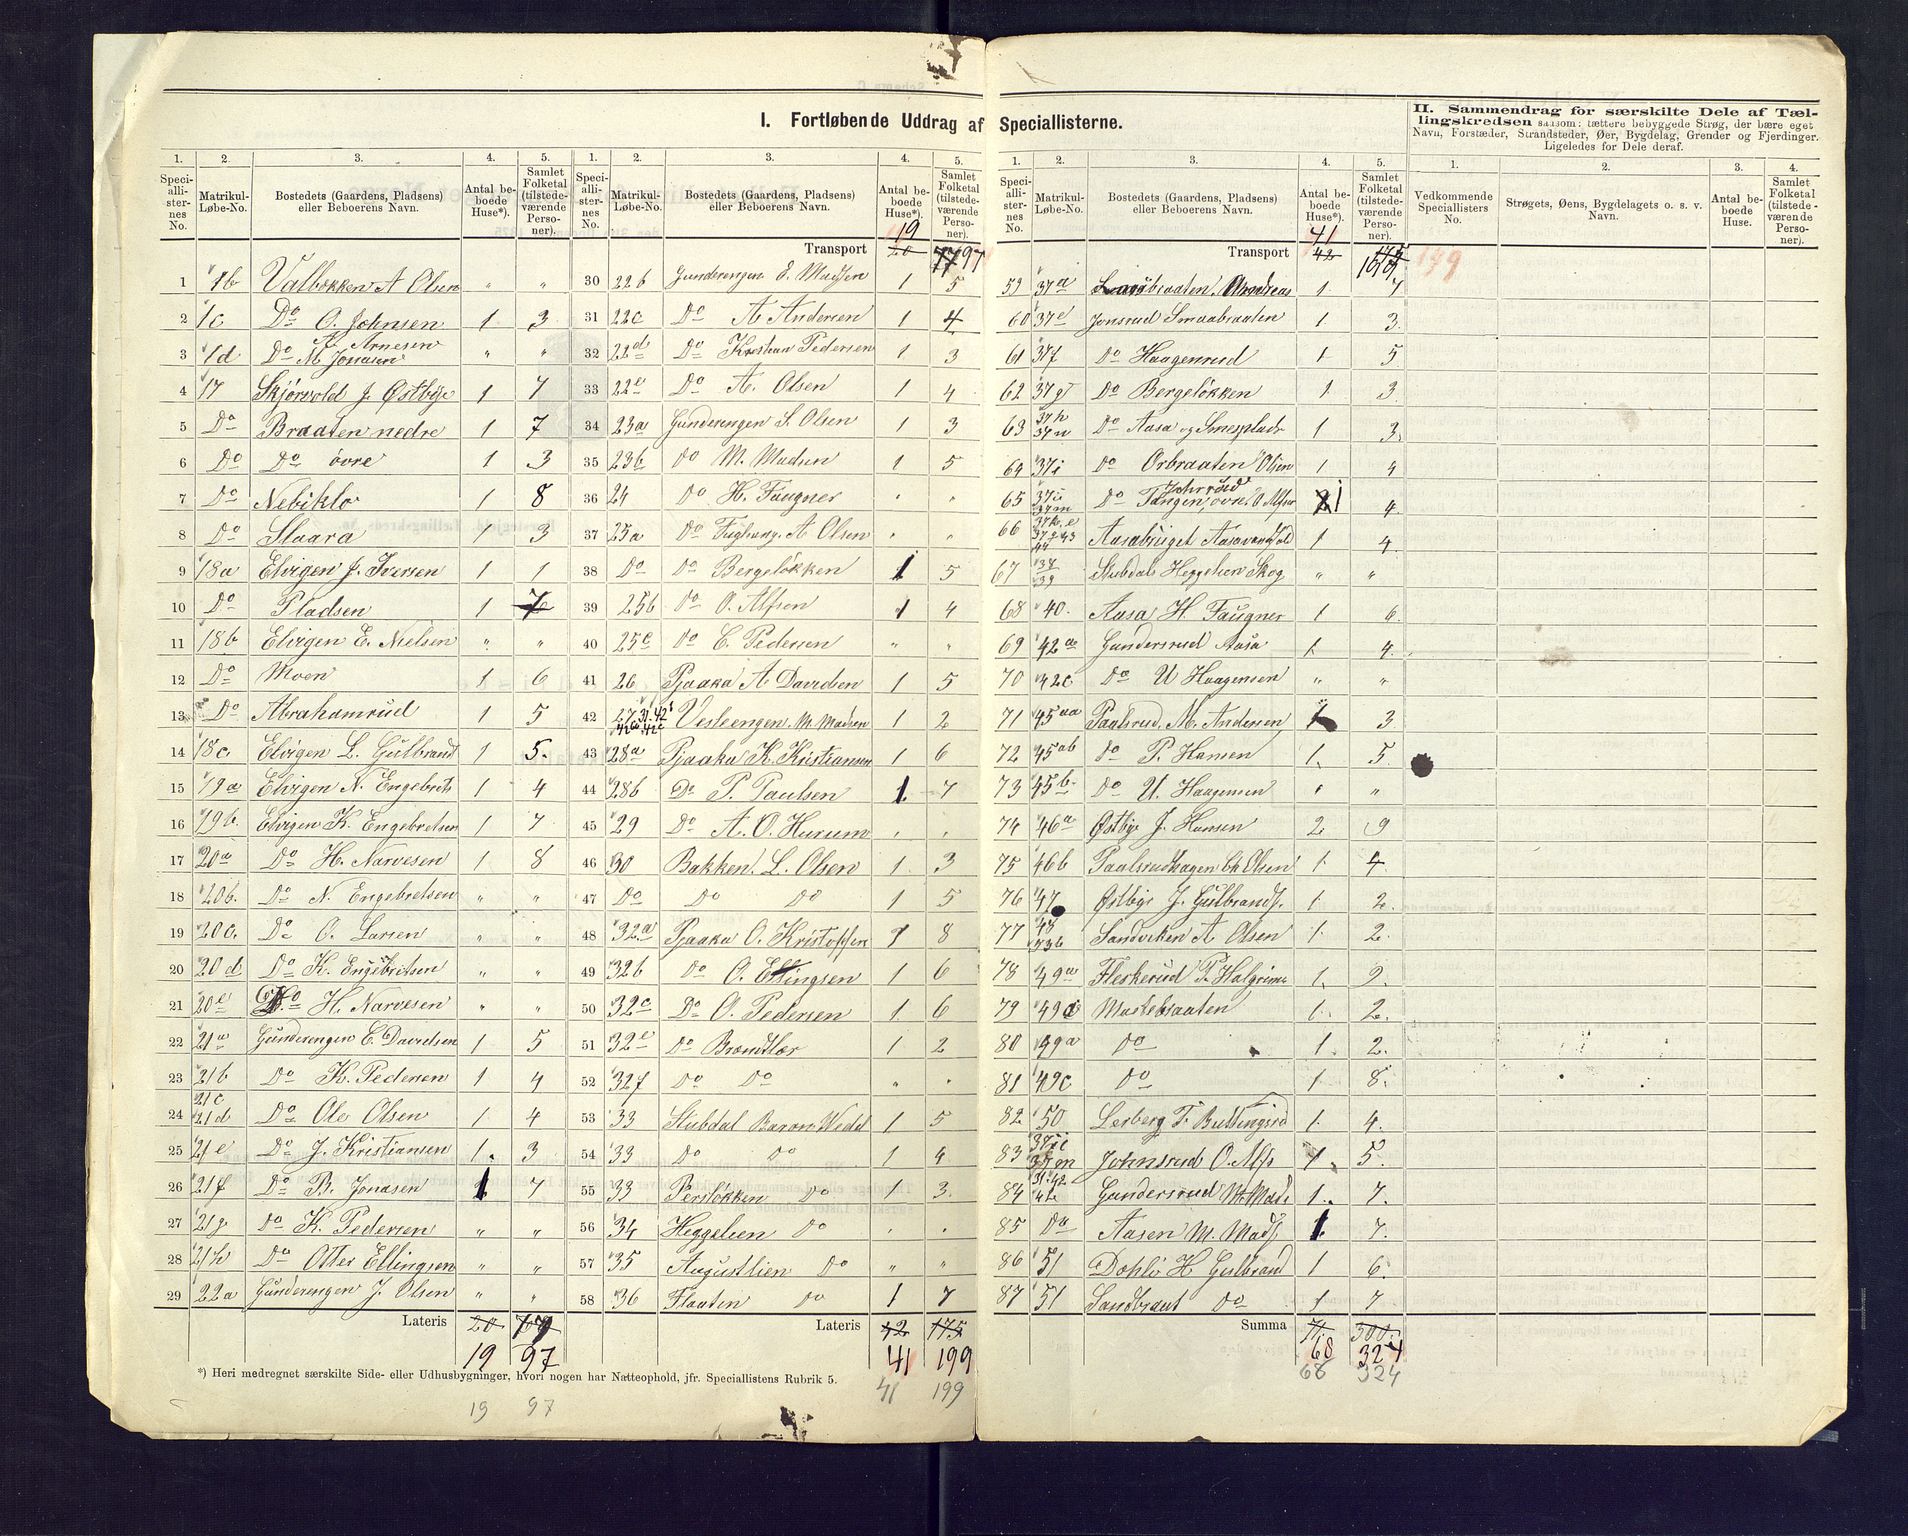 I. Fortløbende Uddrag af Speciallisterne.
II. Sammendrag for særskilte Dele af Tællingskredsen saasom: tættere bebyggede Strøg, der bære eget
Navn, Forstæder, Strandsteder, Øer, Bygdelag, Grender og Fjerdinger.
Ligeledes for Dele deraf.
1. 2. 3. 4. 5.
Speciallisternes No. Matrikul-Løbe-No. Bostedets (Gaardens, Pladsens) eller Beboerens Navn. Antal beboede Huse*). Samlet Folketal (tilstedeværende Personer).
1 1b Valbækken A Olsen " "
2 1c Do O. Johnsen 1 3
3 1d Do A. Arnesen M. Jonasen " "
4 17 Skjørvold J. Østbye 1 7
5 Do Braaten nedre 1 7
6 Do Do øvre 1 3
7 Do Nebiklo 1 8
8 Do Slaara 1 3
9 18a Elvigen J. Iversen 1 1
10 Do Pladsen 1 7
11 18b Elvigen E. Nielsen " "
12 Do Moen 1 6
13 Do Abrahamrud 1 5
14 18c Elvigen L. Gulbrand 1 5.
15 19a Elvigen N. Engebrets 1 4
16 19b. Elvigen K. Engebretsen 1 7
17 20a Do H. Narvesen 1 8
18 20b. Do N. Engebretsen " "
19 20c. Do O. Larsen " "
20 20d Do K. Engebritsen " "
21 20e Do H. Narvesen " "
22 21a Gunderengen E. Davidsen 1 5
23 21b Do K. Pedersen 1 4
24 21c 21d Do Ole Olsen 1 4
25 21e Do J. Kristiansen 1. 3
26 21f Do B. Jonasen 1 7
27 21g Do K. Pedersen " "
28 21h Do Otter Ellingsen " "
29 22a Gunderengen J. Olsen " "
Lateris 20
19 97
19 97
1. 2. 3. 4. 5.
Speciallisternes No. Matrikul-Løbe-No. Bostedets (Gaardens, Pladsens) eller Beboerens Navn. Antal beboede Huse*). Samlet Folketal (tilstedeværende Personer).
19
Transport 20 97
30 22b Gunderengen E. Madsen 1 5
31 22c Do A Andersen 1 4
32 22d Do Kristian Pedersen 1 3
33 22e Do A. Olsen 1 4
34 23a Gunderengen S. Olsen 1 3
35 23b Do M. Madsen 1 5
36 24 Do H. Faugner " "
37 25a Do A Olsen " "
38 Do Do Bergeløkken 1 5
39 25b Do O. Alfsen 1 4
40 25c Do C. Pedersen " "
41 26 Pjaaka A Davidsen 1 5
42 27 31. 42 42b 42c Vesleengen M. Madsen 1 2
43 28a Pjaaka K. Kristiansen 1 6
44 28b Do P. Paulsen 1. 7
45 29 Do A. O. Hurum " "
46 30 Bakken L. Olsen 1 3
47 Do Do Do 1 5
48 32a Pjaaka O. Kristoffen 1 8
49 32b Do O. Ellingsen 1 6
50 32c Do O. Pedersen 1 6
51 32e Do Brændtær 1 2
52 32f Do Do " "
53 33 Stubdal Baron Wedel 1 5
54 33 Do Do 1 4
55 33 Persløkken Do 1 3.
56 34 Heggelien Do " "
57 35 Augustlien Do " "
58 36 Flaaten Do 1 7
Lateris 42 175
41 199
41 199
*) Heri medregnet særskilte Side- eller Udhusbygninger, hvori nogen har Natteophold, jfr. Speciallistens Rubrik 5.
1. 2. 3. 4. 5.
Speciallisternes No. Matrikul-Løbe-No. Bostedets (Gaardens, Pladsens) eller Beboerens Navn. Antal beboede Huse*). Samlet Folketal (tilstedeværende Personer).
41 175
Transport 42 199 199
59 37a Andreas 1 7
60 37e Jonsrud Smaabraaten 1 3.
61 37f Do Haagenrud 1 5
62 37g Do Bergeløkken 1 3
63 37h 37n Do Aasa og Smedplads 1 3.
64 37i Do Orbraaten Olsen 1 4
65 37m Do Tangen øvre O Alfsen 1 4.
66 44 Aasabruget 1 4.
67 38 39 Stubdals Heggelien Skog " "
68 40. Aasa H. Faugner 1 6
69 42a Gundersrud Aasa 1. 4.
70 42c Do U Haagensen " "
71 45aa Paalsrud M. Andersen 1 3
72 45ab Do P. Hansen 1. 5.
73 45b Do U. Haagensen " "
74 46a Østbye J. Hansen 2 9
75 46b Paalsrudhagen Ch. Olsen 1. 4
76 47 Østbye J. Gulbrands. 1. 2.
77 Sandviken A Olsen 1. 2.
78 49a Fleskerud P. Halgrims 1. 2.
79 49c Mastebraaten 1. 2.
80 49a Do 1. 2.
81 49c Do 1 8.
82 50 Lerberg F. Buttingsrud 1. 4.
83 37m Johnsrud O. Alfs 1. 5.
84 31. 42 42 Gundersrud M. Mads 1. 7.
85 Do Aasen M. Mads. 1. 7.
86 51 Dohli H Gulbrand 1 6.
87 51 Sandbraat Do 1 7
Summa 71. 300.
68 324
68 324
1. 2. 3. 4.
Vedkommende Speciallisters No. Strøgets, Øens, Bygdelagets o. s. v. Navn. Antal beboede Huse. Samlet Folketal (tilstedeværende Personer).
199